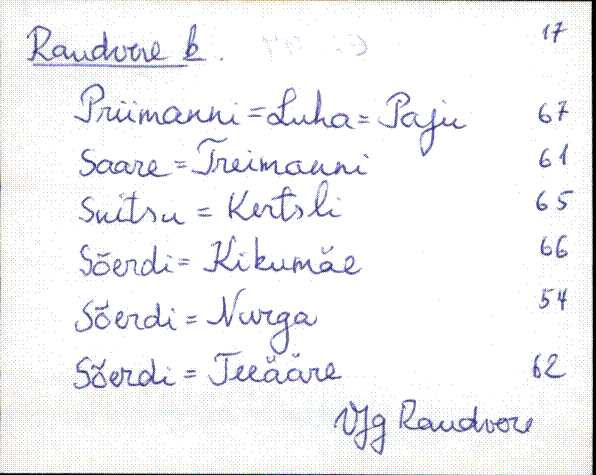 Randvere k. 17
Priimanni = Luha = Paju 67
Saare = Treimanni 61
Suitsu = Kertsli 65
Sõerdi = Kikumäe 66
Sõerdi = Nurga 54
Sõerdi = Teeääre 62
Vjg Randvere